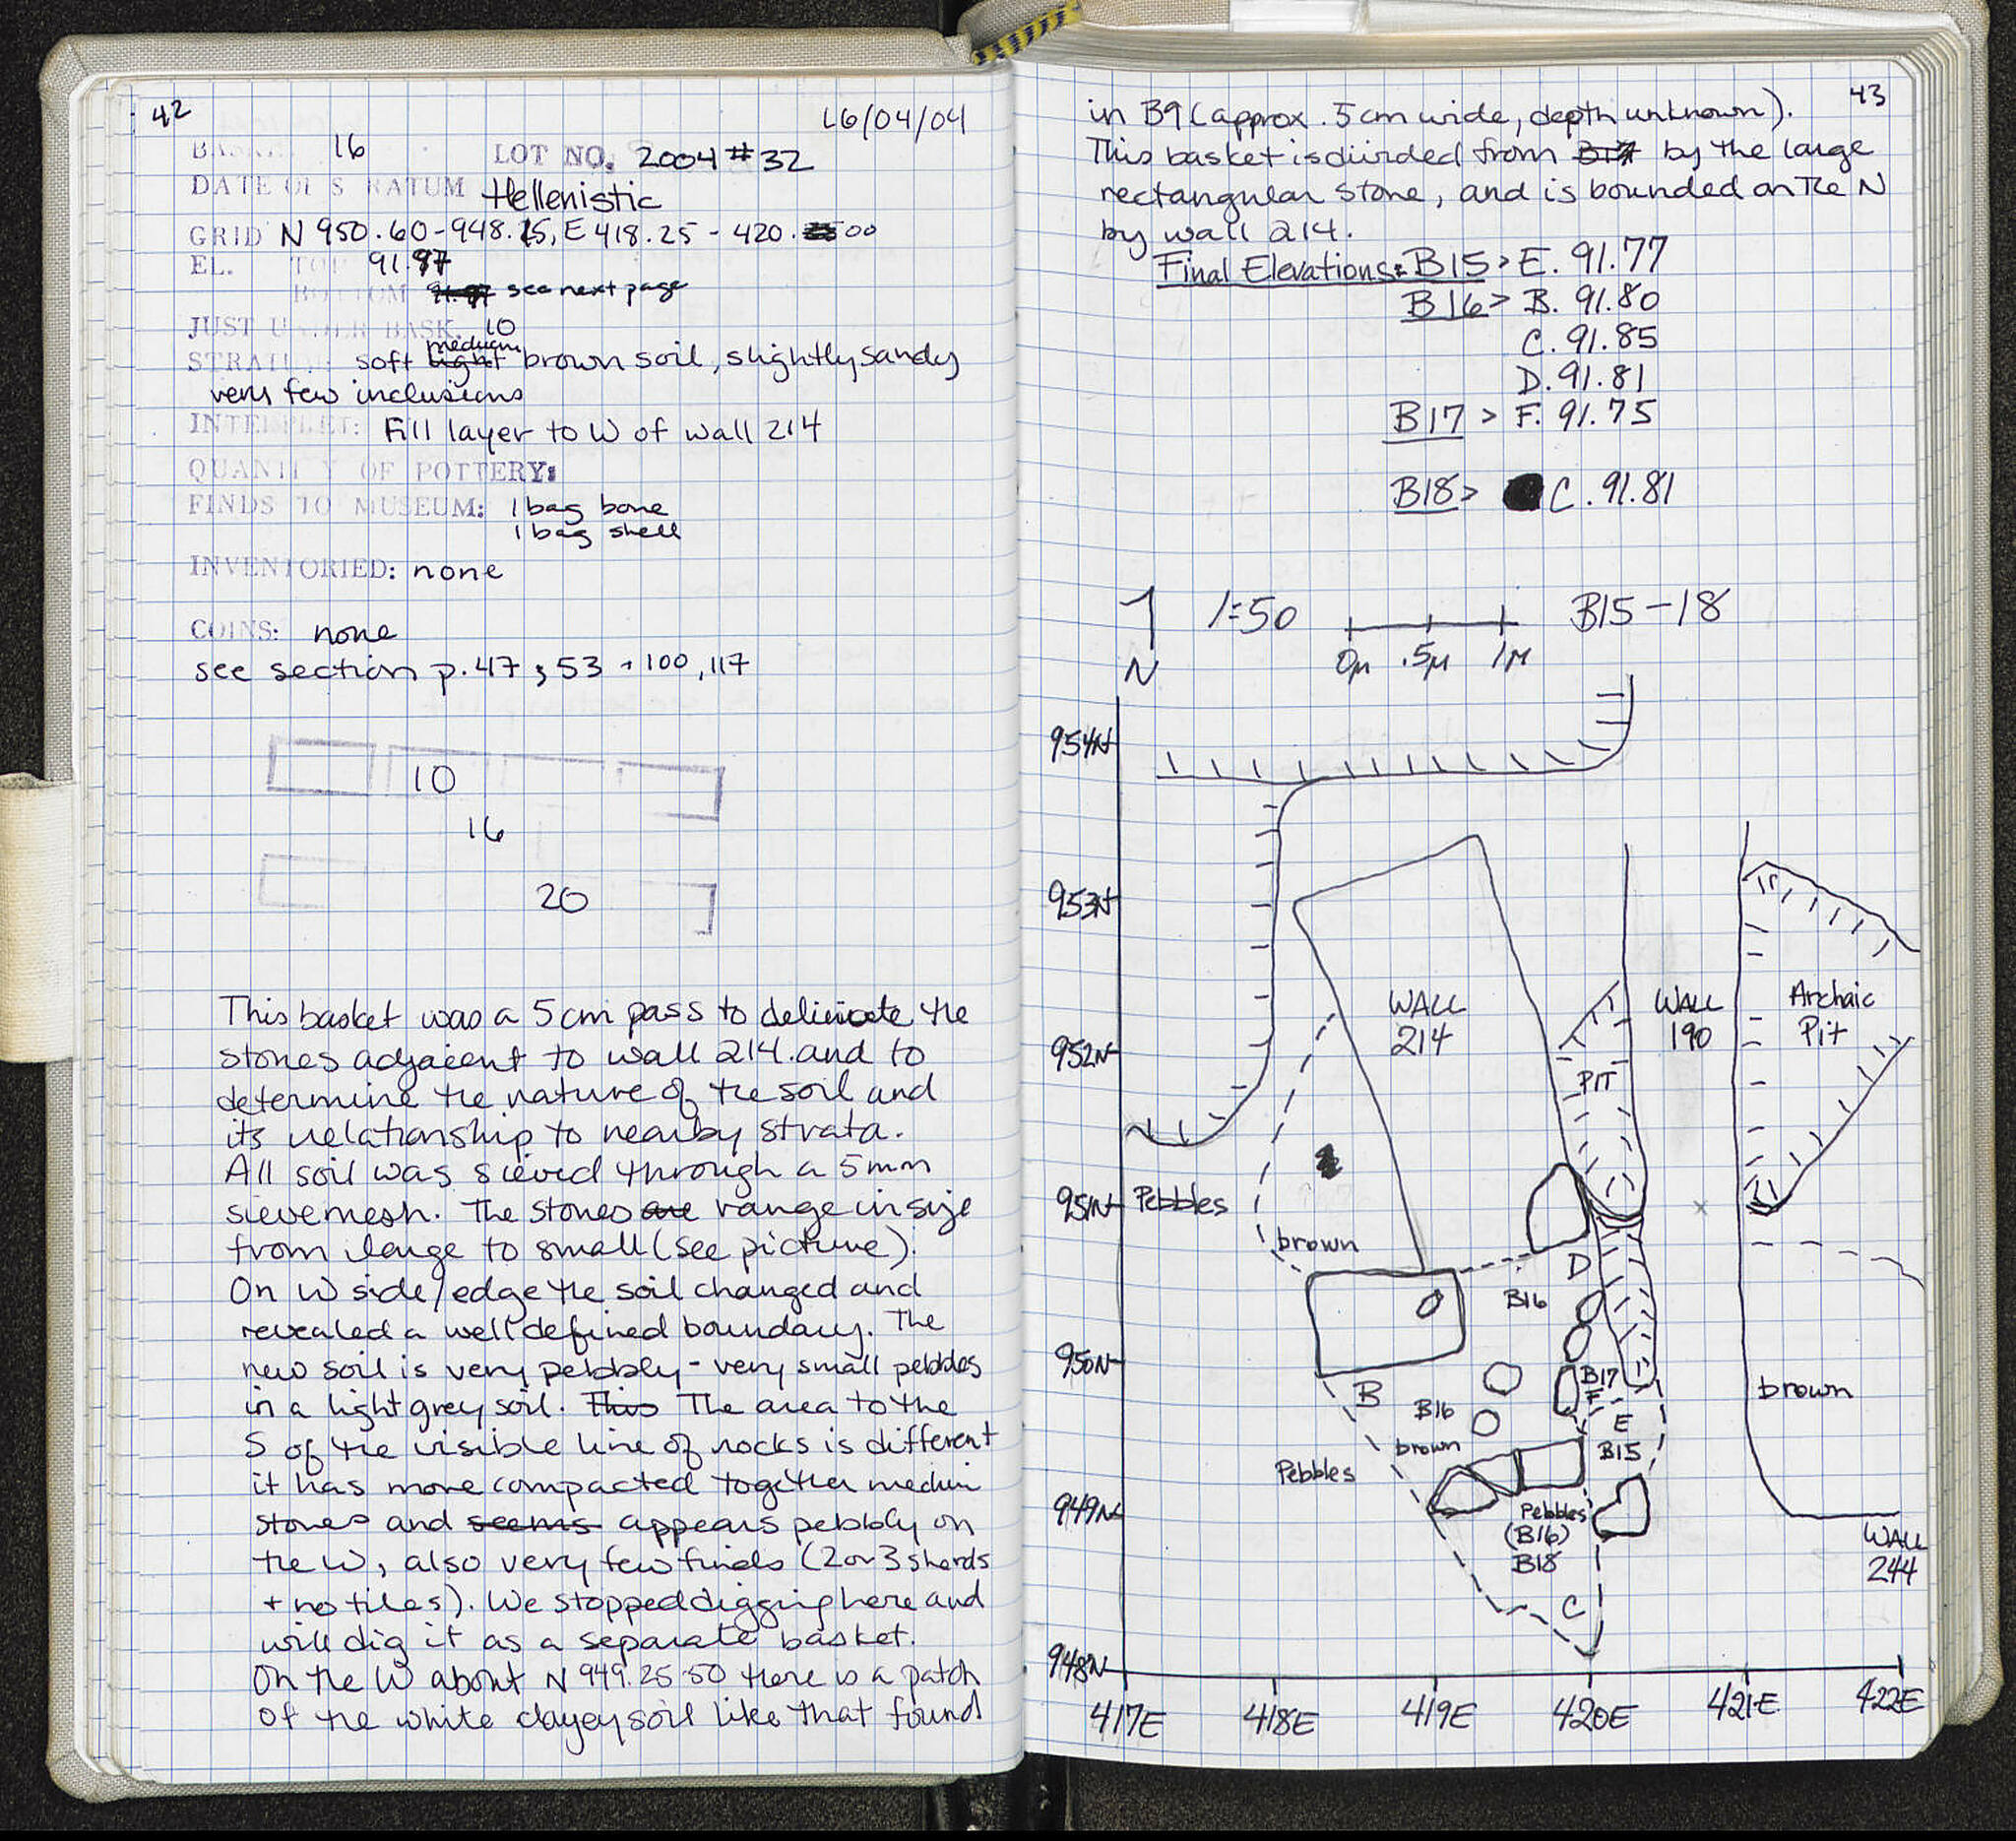 42
16/04/04
BASK. 16 LOT NO. 2004 #32
DATE OF STRATUM Hellenistic
GRID N 950.60-948.15, E 418.25 - 420.00
EL. TOP 91.97
BOTTOM see next page
JUST UNDER BASK. 10
STRATUM: soft medium brown soil, slightly sandy
very few inclusions
INTERPRET: Fill layer to W of wall 214
QUANTITY OF POTTERY:
FINDS TO MUSEUM: 1 bag bone
1 bag shell
INVENTORIED: none
COINS: none
see section p. 47, 53 + 100, 117
10
16
20
This basket was a 5 cm pass to deliniate the
stones adjacent to wall 214. and to
determine the nature of the soil and
its relationship to nearby strata.
All soil was sieved through a 5mm
sievemesh. The stones are range in size
from large to small (see picture).
On W side/edge the soil changed and
revealed a well defined boundary. The
new soil is very pebbly - very small pebbles
in a light grey soil. This The area to the
S of the visible line of rocks is different
it has more compacted together medium
stones and seems appears pebbly on
the W, also very few finds (2 or 3 sherds
+ no tiles). We stopped digging here and
will dig it as a separate basket.
On the W about N 949.25-50 there is a patch
of the white clayey soil like that found
43
in B9 (approx. 5 cm wide, depth unknown).
This basket is divided from B17 by the large
rectangular stone, and is bounded on the N
by wall 214.
Final Elevations: B15 > E. 91.77
B16 > B. 91.80
C. 91.85
D. 91.81
B17 > F. 91.75
B18 > C. 91.81
N
1:50
0M .5M 1M
B15-18
954N
953N
WALL
214
WALL
190
Archaic
Pit
952N
PIT
951N
Pebbles
brown
D
B16
950N
B
B16
B17
F
brown
E
B15
brown
Pebbles
949N
Pebbles
(B16)
B18
WALL
244
C
948N
417E 418E 419E 420E 421E 422E